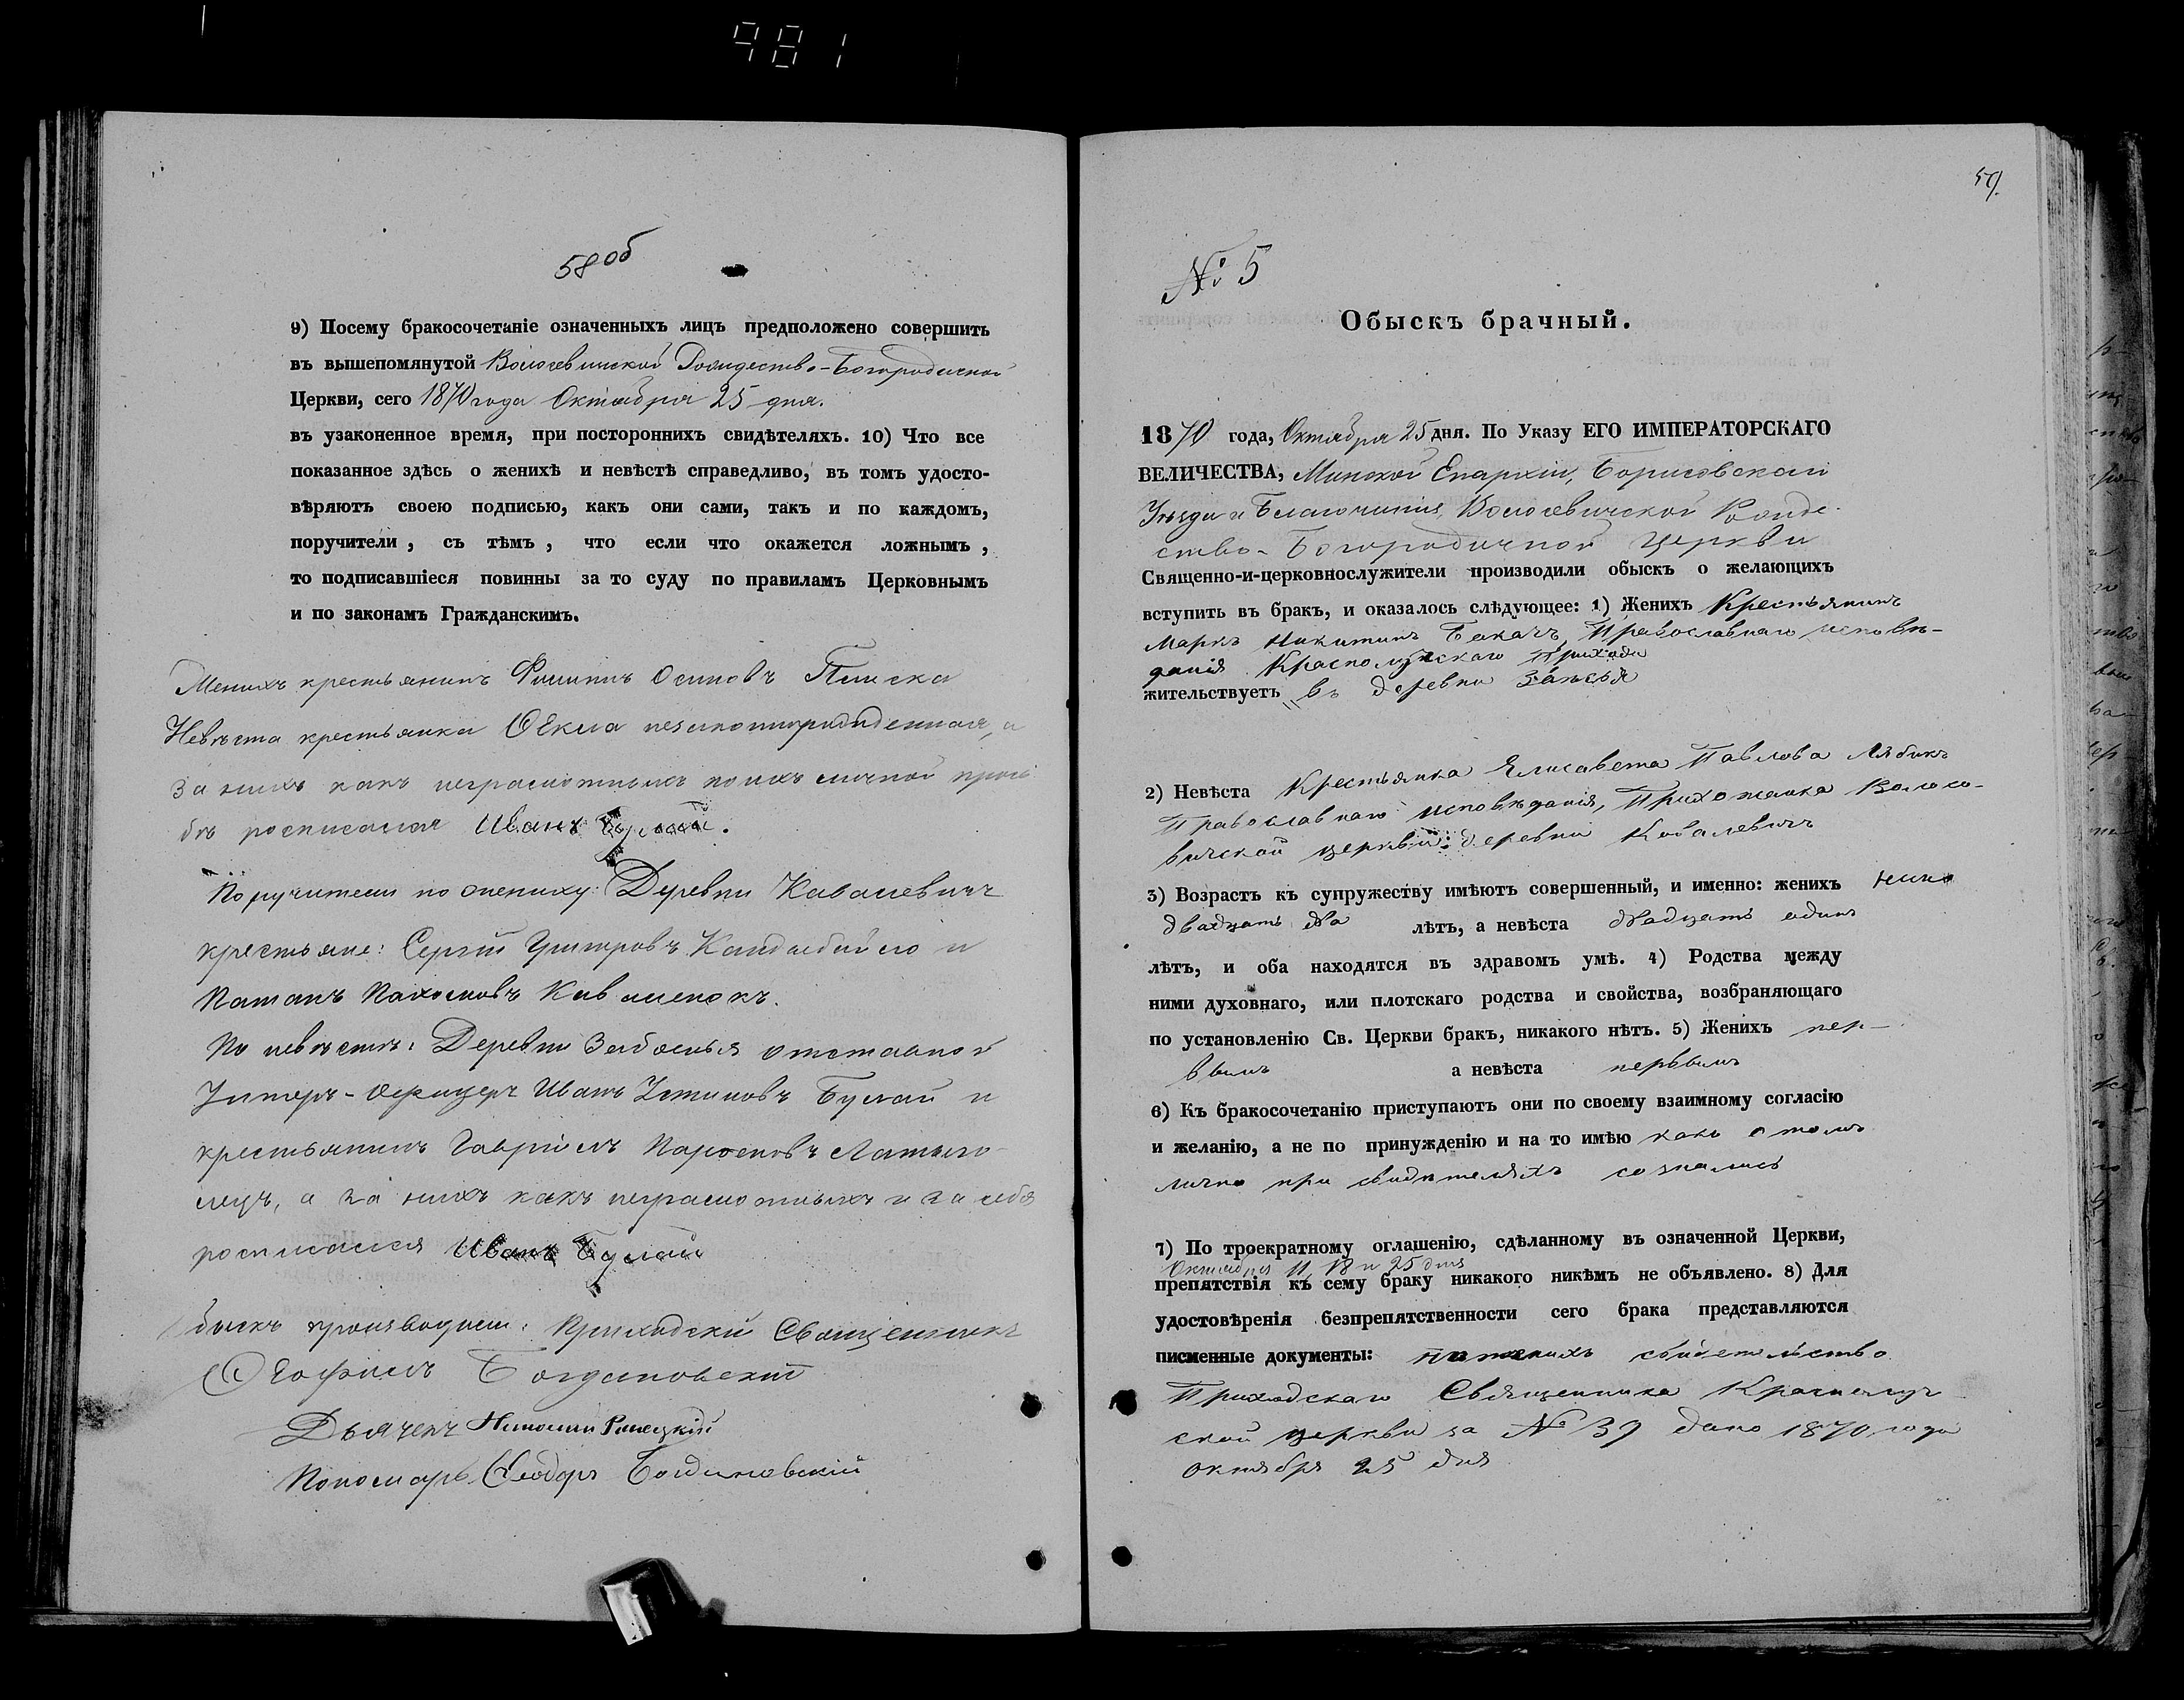 981
58 об
9) Посему бракосочетаніе означенныхъ лицъ предположено совершить
въ вышепомянутой Волосевичской Рождество-Богородичной
Церкви, сего 1870 года Октября 25 дня.
въ узаконенное время, при постороннихъ свидѣтеляхъ. 10) Что все
показанное здѣсь о женихѣ и невѣстѣ справедливо, въ томъ удосто-
вѣряютъ своею подписью, какъ они сами, такъ и по каждомъ,
поручители, съ тѣмъ, что если что окажется ложнымъ,
то подписавшіеся повинны за то суду по правиламъ Церковнымъ
и по законамъ Гражданскимъ.
Женихъ крестьянинъ Филипъ Осиповъ
Невѣста крестьянка Ѳекла а
За нихъ какъ неграмотныхъ по ихъ личной прозь
бѣ росписался Иванъ Булай.
Поручители по жениху: Деревни Ковалевичъ
крестьяне: Сергій и
Потапъ Пахомовъ Коваленокъ.
По невѣстѣ: Деревни отставной
Унтеръ-Офицеръ Иванъ Устиновъ Булай и
крестьянинъ Гавріилъ
а за нихъ какъ неграмотныхъ и за себя
росписался Иванъ Булай
Обыскъ производили: Приходскій Священникъ
Ѳеофилъ Богдановскій
Дьячекъ
Пономарь Ѳеодоръ Богдановскій
59.
№ 5
Обыскъ брачный.
1870 года, Октября 25 дня. По Указу ЕГО ИМПЕРАТОРСКАГО
ВЕЛИЧЕСТВА, Минской Епархіи, Борисовскаго
Уѣзда и Благочинія, Волосевичской Рожде-
ство-Богородичной Церкви
Священно-и-церковнослужители производили обыскъ о желающихъ
вступить въ бракъ, и оказалось слѣдующее: 1) Женихъ Крестьянинъ
Маркъ Никитинъ Бакачъ, Православнаго исповѣ-
данія Краснолукскаго Прихода
жительствуетъ въ деревни
2) Невѣста Крестьянка Елисавета Павлова
Православнаго исповѣданія, Прихожанка Волосе-
вичской церкви: деревни Ковалевичъ
3) Возрастъ къ супружеству имѣютъ совершенный, и именно: женихъ
двадцать два лѣтъ, а невѣста двадцать одинъ
лѣтъ, и оба находятся въ здравомъ умѣ. 4) Родства между
ними духовнаго, или плотскаго родства и свойства, возбраняющаго
по установленію Св. Церкви бракъ, никакого нѣтъ. 5) Женихъ пер-
вымъ а невѣста первымъ
6) Къ бракосочетанію приступаютъ они по своему взаимному согласію
и желанію, а не по принужденію и на то имѣю какъ о томъ
лично при свидѣтеляхъ сознались
7) По троекратному оглашенію, сдѣланному въ означенной Церкви,
Октября 11, 18 и 25 дня
препятствія къ сему браку никакого никѣмъ не объявлено. 8) Для
удостовѣренія безпрепятственности сего брака представляются
писменные документы: свидетельство
Приходскаго Священника Краснолук
ской церкви за № 39 дано 1870 года
октября 25 дня